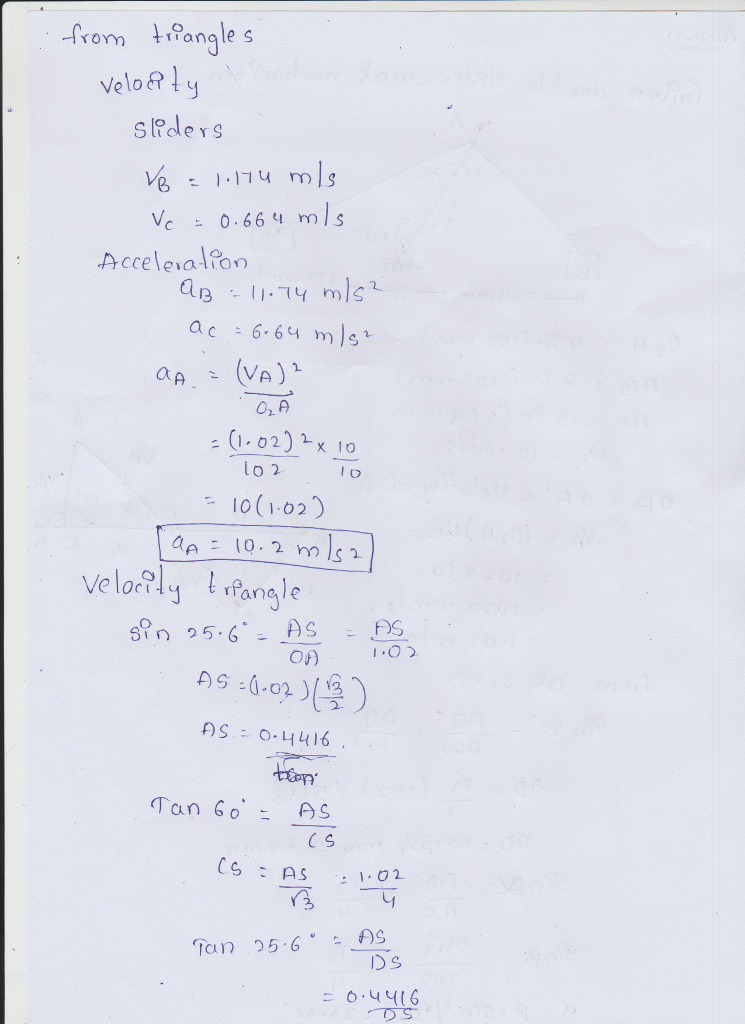 from triangles
velocity
sliders
VB = 1.174 m/s
Vc = 0.664 m/s
Acceleration
aB = 11.74 m/s²
ac = 6.64 m/s²
aA = (VA)²
O2A
= (1.02)² x 10
102 10
= 10(1.02)
aA = 10.2 m/s2
velocity triangle
sin 25.6° = AS = AS
OA 1.02
AS = (1.02)(√3/2)
AS = 0.4416.
Tan 60° = AS
CS
CS = AS = 1.02
√3 4
Tan 25.6° = AS
DS
= 0.4416
DS